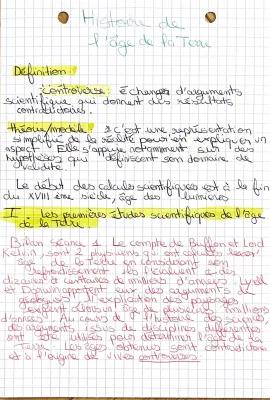 Histoire de
l'âge de la Terre
Définition:
controverse: Echanges d'arguments
scientifique qui donnent des résultats
contradictoires.
théorie/modèle: c'est une représentation
simplifié de la réalité pour en expliquer un
aspect. Elle s'appuie notamment sur des
hypothèses qui définissent son domaine de
validité.
Le début des calculs scientifiques est à la fin
du XVIII ème siècle, âge des lumières
I - Les premières études scientifiques de l'âge
de la Terre
Bilan séance 1. Le compte de Buffon et Lord
Kelvin sont 2 physiciens qui ont calculé
âge de la Terre en considérant son
refroidissement. Ils l'évaluent à des
dizaines à centaines de milliers d'années. Lyell
et Darwin apportent eux des arguments de
géologues. L'explication des paysages
âge de plusieurs millions
d'années. Au cours de l'histoire des sciences
des arguments issus de disciplines différentes
ont été utilisés pour déterminer l'âge de la
Terre. Les âges obtenus sont contradictoires
et à l'origine de vives controverses